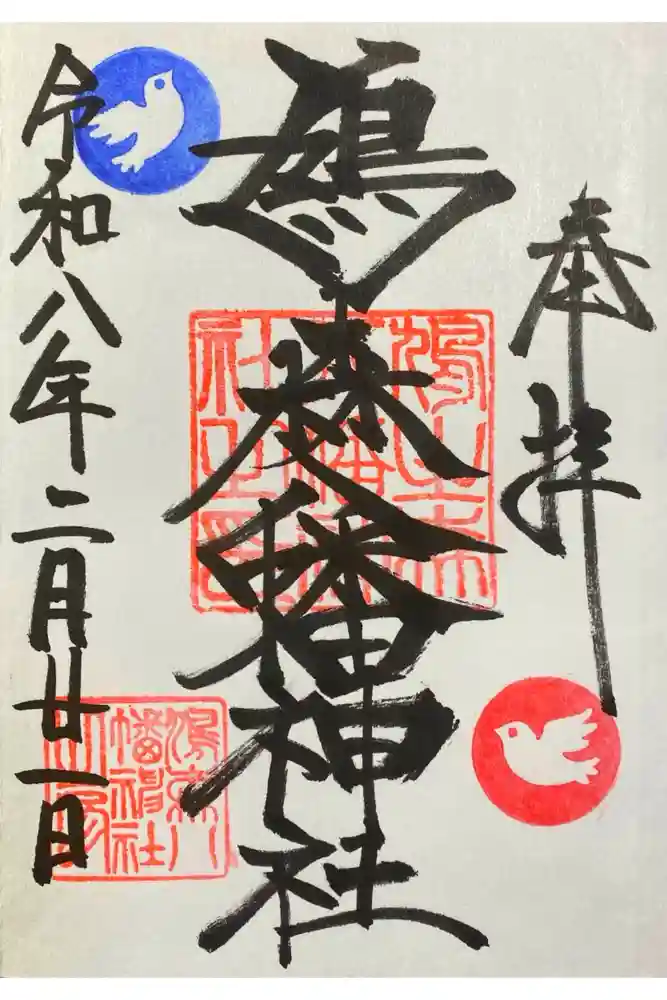 奉拝
鳩森八幡神社
令和八年二月廿一日
鳩之森
八幡神
社之印
鳩森八
幡神社